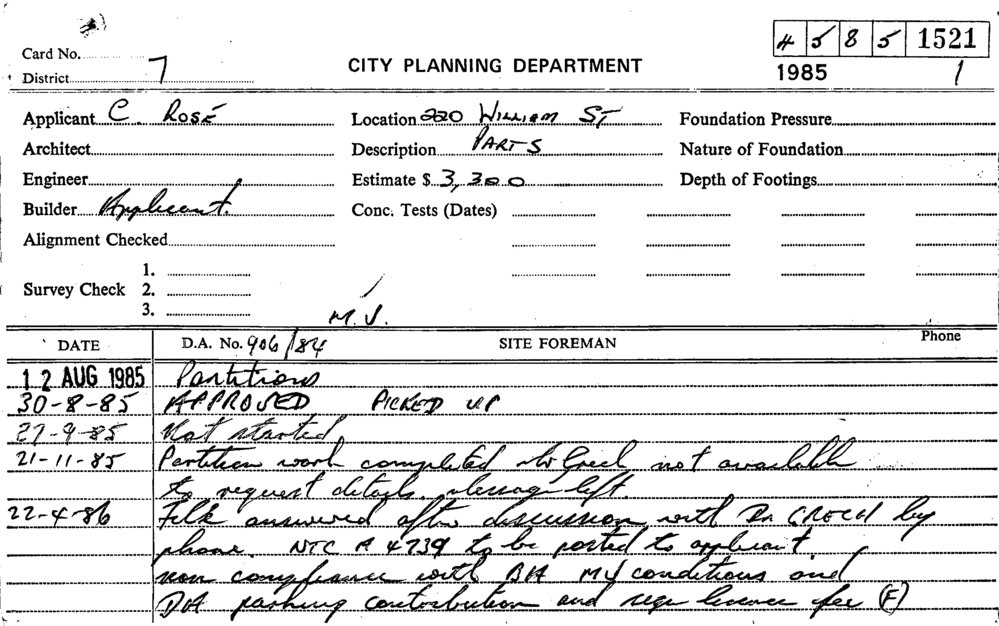 4 5 8 5 1521
Card No.
District 7
CITY PLANNING DEPARTMENT
1985 1
Applicant C. ROSÉ Location 220 WILLIAM ST Foundation Pressure
Architect Description PARTS Nature of Foundation
Engineer Estimate $ 3,300 Depth of Footings
Builder Applicant. Conc. Tests (Dates)
Alignment Checked
1.
Survey Check 2.
3.
DATE D.A. No. 906/84 SITE FOREMAN Phone
12 AUG 1985 Partitions
30-8-85 APPROVED PICKED UP
27-9-85 Not started
21-11-85 Partition work completed Mr not available
to request details. Message left.
22-4-86 File answered after discussion with CRECH by
phone. NTC A 4739 to be posted to applicant.
non compliance with BA conditions and
DA parking contribution and licence fee (F)